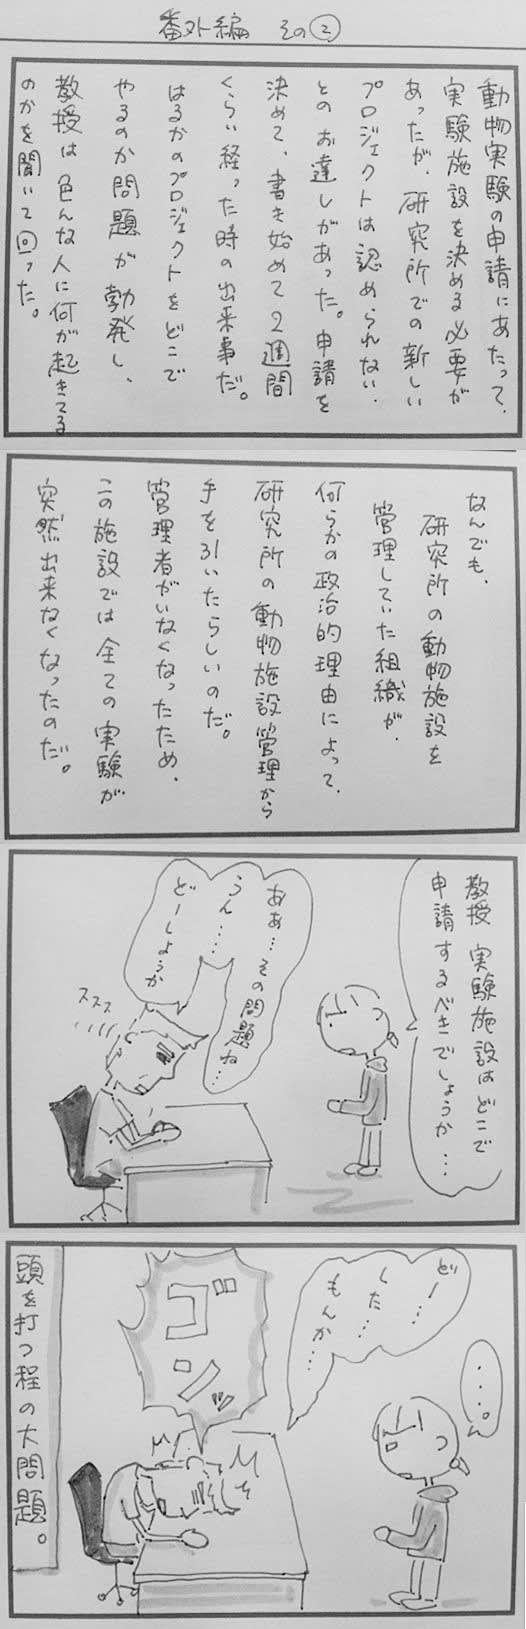 番外編 その②
動物実験の申請にあたって、
実験施設を決める必要が
あったが、研究所での新しい
プロジェクトは認められない、
とのお達しがあった。申請を
決めて、書き始めて2週間
くらい経った時の出来事だ。
はるかのプロジェクトをどこで
やるのか問題が勃発し、
教授は色んな人に何が起きてる
のかを聞いて回った。
なんでも、
研究所の動物施設を
管理していた組織が、
何らかの政治的理由によって、
研究所の動物施設管理から
手を引いたらしいのだ。
管理者がいなくなったため、
この施設では全ての実験が
突然出来なくなったのだ。
教授 実験施設はどこで
申請するべきでしょうか…
ああ…その問題ね…
うん……
どーしようか
ススス
・・・。
どー…
した…
もんか…
ゴンッ
頭を打つ程の大問題。